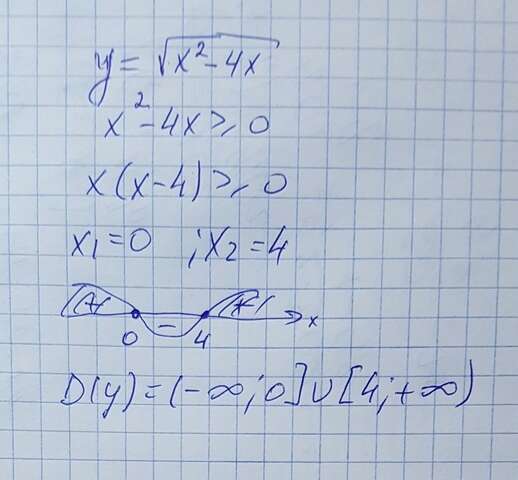 y = √(x² - 4x)
x² - 4x ≥ 0
x(x - 4) ≥ 0
x₁ = 0 ; x₂ = 4
+ - + x
0 4
D(y) = (-∞; 0] ∪ [4; +∞)